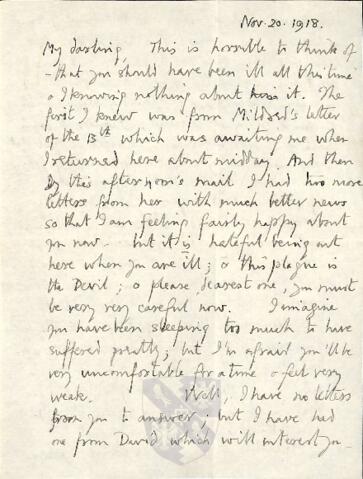 Nov. 20. 1918.
My darling, This is horrible to think of
- that you should have been ill all this time
& I knowing nothing about it. The
first I knew was from Mildred's letter
of the 13th which was awaiting me when
I returned here about midday. And then
by this afternoon's mail I had two more
letters from her with much better news
so that I am feeling fairly happy about
you now. but it is hateful being out
here when you are ill; & this plague is
the Devil; & please, dearest one, you must
be very very careful now. I imagine
you have been sleeping too much to have
suffered greatly; but I'm afraid you'll be
very uncomfortable for a time & feel very
weak. Well, I have no letters
from you to answer; but I have had
one from David which will interest you -